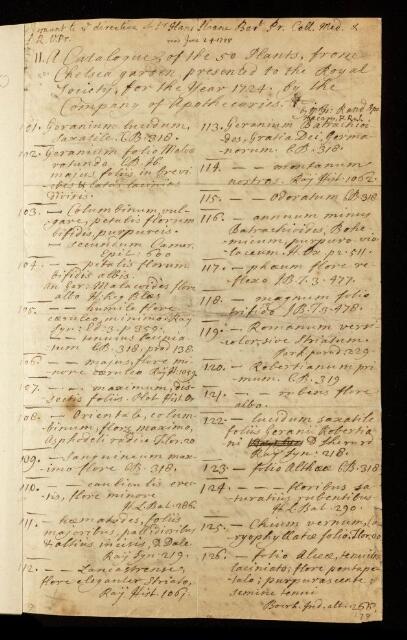 pursuant to ye direction of Sr Hans Sloane Bart. Pr. Coll. Med. &
R.S. V.Pr.
II. A Catalogue of the 50 Plants, from
Chelsea garden, presented to the Royal
Society, for the Year 1724. by the
Company of Apothecaries.
101. Geranium lucidum,
saxatile. C.B. 318.
102. Geranium folio Malvæ
rotundo. C.B. 
majus foliis in brevi
& latas lacinias
divisis.
103. — Columbinum, vul-
gare, petalis florum
bifidis, purpureis.
— secundum Camer.
Epit. 600
104. — petalis florum
bifidis albis.
an Ger. Malacoides flore
albo H. Reg. Blas
105. — humile flore
cæruleo, minimo. Ray
Syn: Ed: 3. p. 359.
— tenuius lacinia-
tum C.B. 318. prod 138.
106. — majus, flore mi-
nore cæruleo Ray H. 1059
107. — maximum, dis-
sectis foliis. Hist. Ox.
108. — Orientale, colum-
binum, flore maximo,
Asphodeli radice Tcor. 20
109. — Sanguineum max-
imo flore C.B. 318.
110. — cauliculis erec-
tis, flore minore
H.L.Bat. 286.
111. — hæmatodes, foliis
majoribus pallidioribus
& altius incisis, D. Dale
Ray Syn. 219.
112. — Lancastrense,
flore eleganter striato,
Ray Hist. 1067.
113. Geranium Batrachioi-
des, Gratia Dei, Germa-
norum. C.B. 318.
114. — montanum
nostras. Ray Hist. 1062.
115. — odoratum C.B. 318
116. — annuum minus
Batrachioides, Bohe-
micum, purpuro vio-
laceum. H. Ox p2: 511.
117. — phæum flore re-
flexo J.B. T. 3. 477.
118. — magnum folio
trifido J.B. T. 3. 478.
119. — Romanum versi-
color, sive striatum.
Park parad. 229
120. — Robertianum pri-
mum. C.B. 319
121. — rubens flore
albo.
122. — lucidum saxatile
foliis Gerani Robertia-
ni D. Sherard
Ray Syn: 218.
123. — folio Althææ C.B. 318
124. — floribus sa-
turatius rubentibus
H.L.Bat. 290.
125. — Chium vernum, Ca-
ryophyllatæ folio. Tcor. 20.
126. — folio Alceæ, tenuiter
laciniato; flore pentape-
talo; purpurascente
semine tenui
Boerh. Ind. alt. 266.